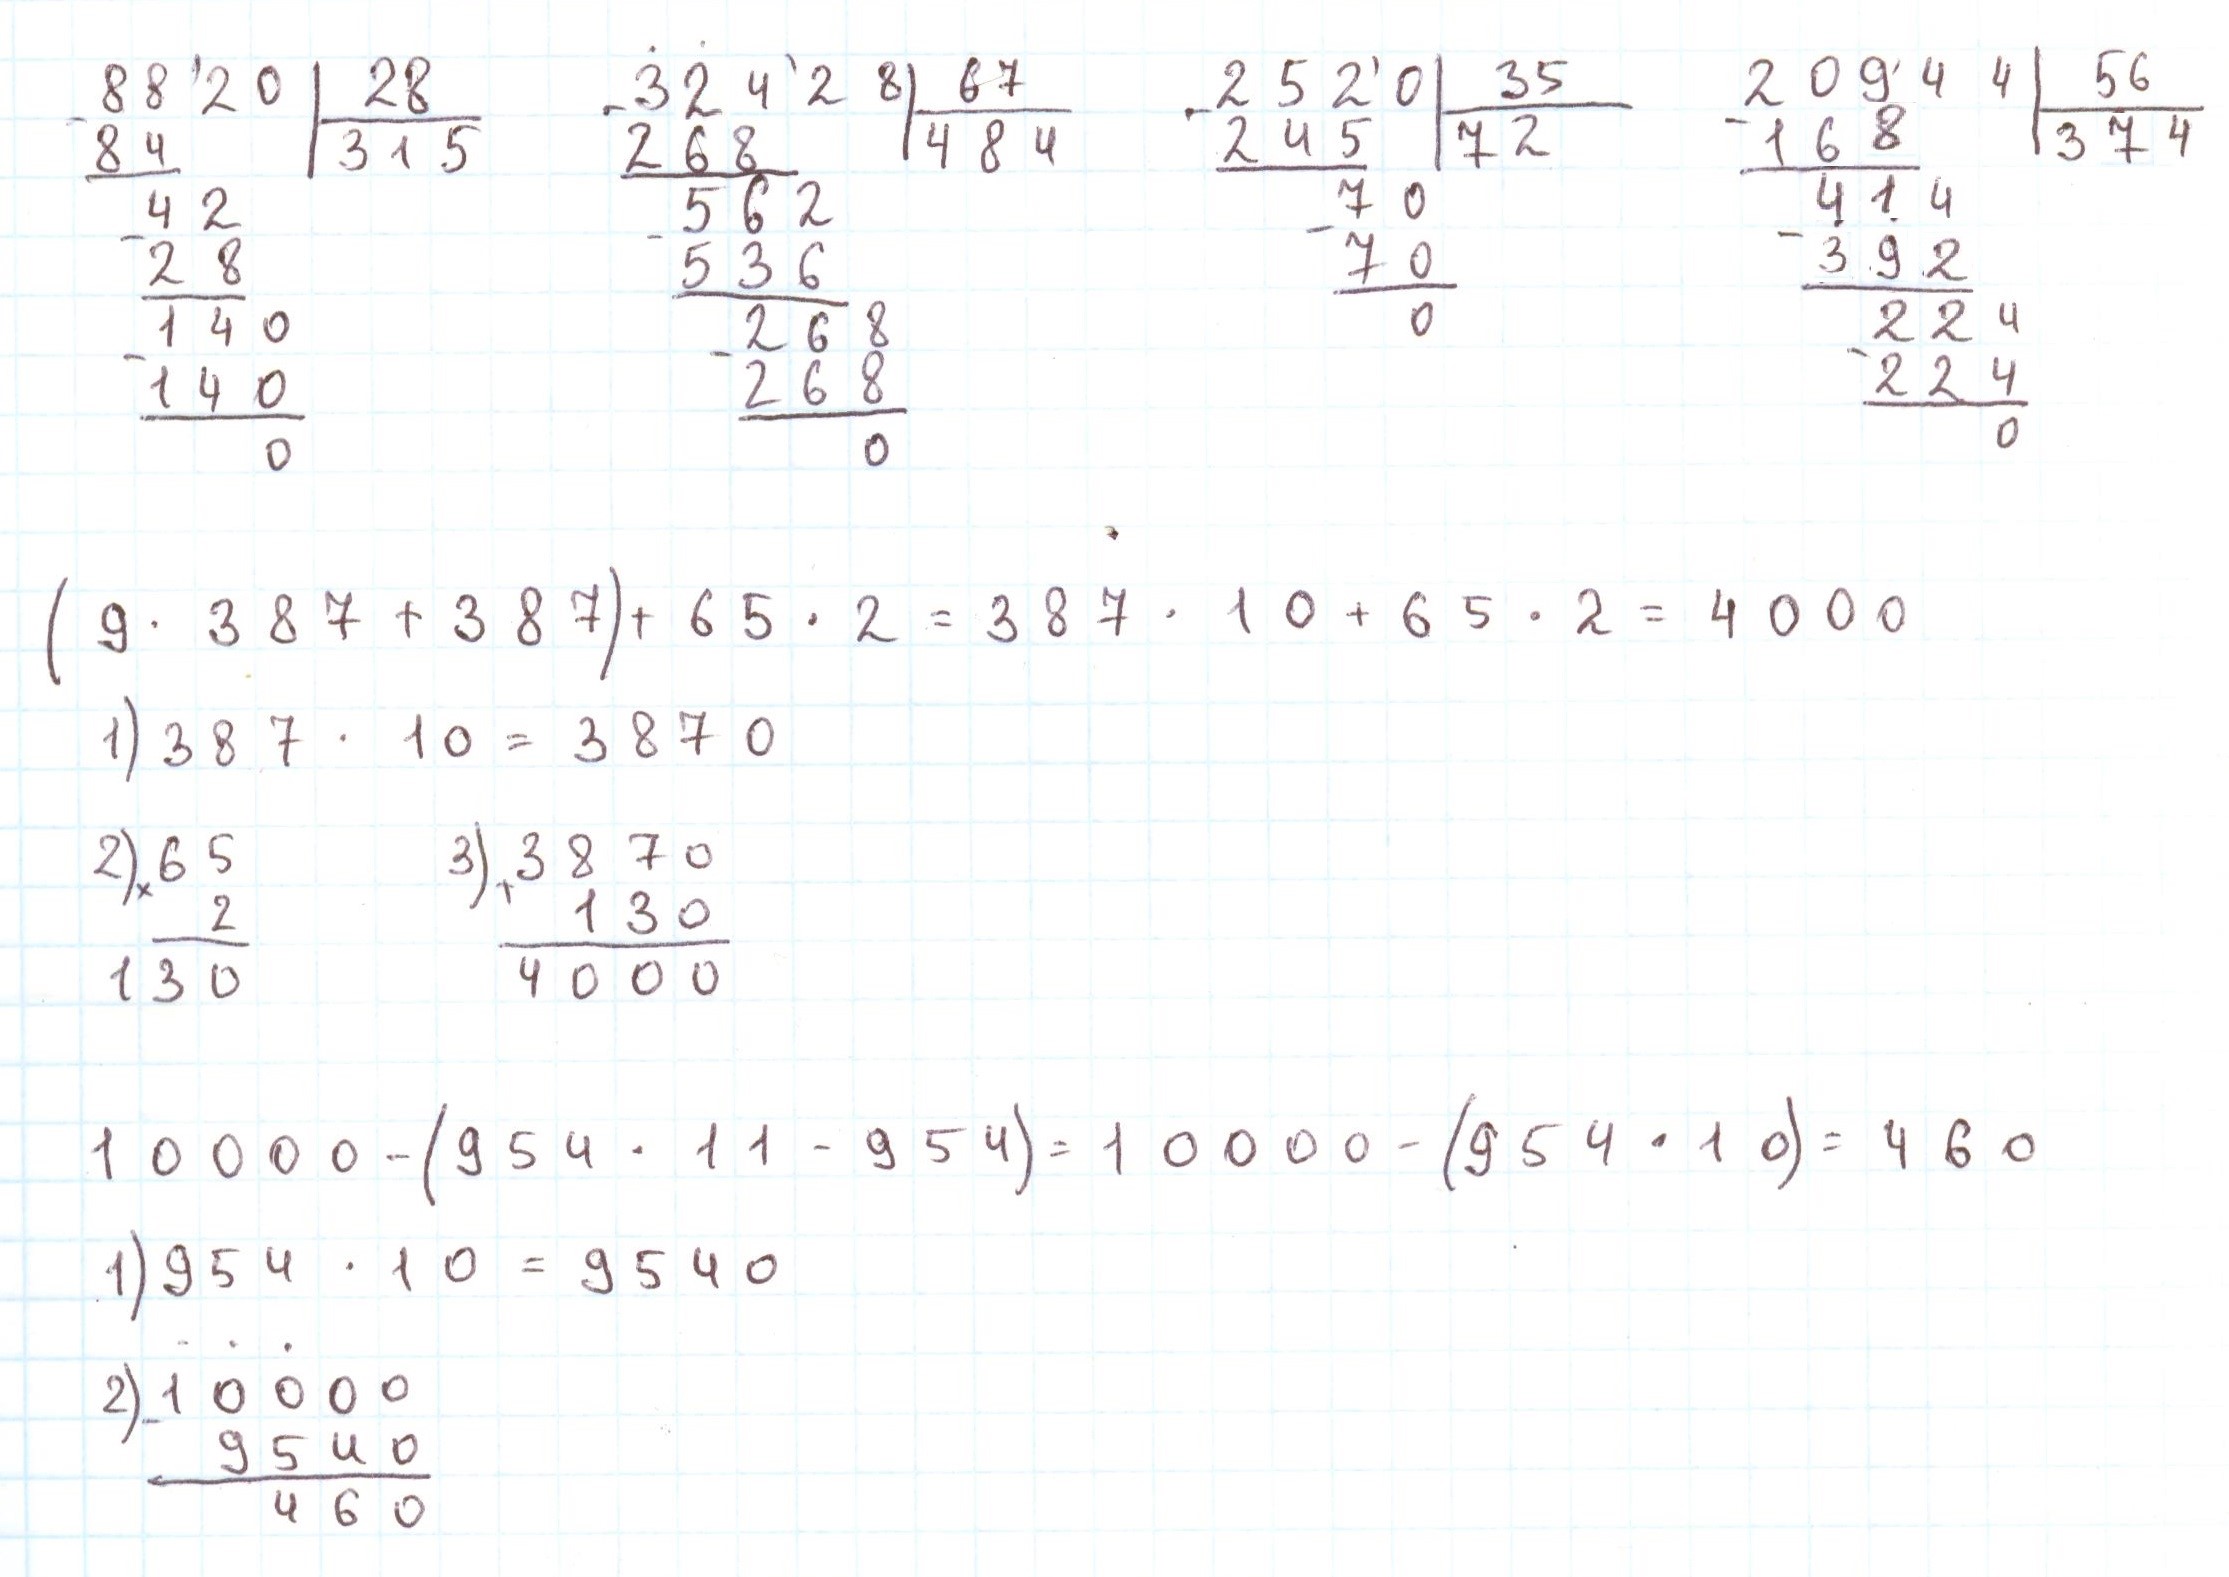 88'20 | 28
-84 | 315
42
-28
140
-140
0
324'28 | 67
-268 | 484
562
-536
268
-268
0
252'0 | 35
-245 | 72
70
-70
0
209'44 | 56
-168 | 374
414
-392
224
-224
0
(9 · 387 + 387) + 65 · 2 = 387 · 10 + 65 · 2 = 4000
1) 387 · 10 = 3870
2) × 65
2
130
3) + 3870
130
4000
10000 - (954 · 11 - 954) = 10000 - (954 · 10) = 460
1) 954 · 10 = 9540
2) - 10000
9540
460